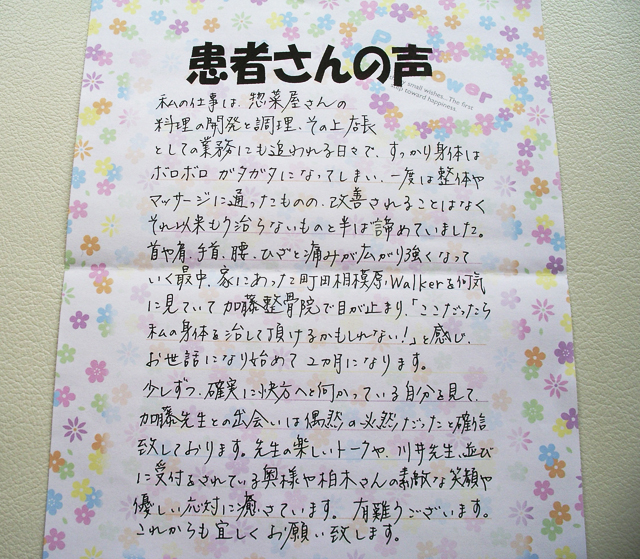 患者さんの声
small wishes. The first
step toward happiness.
私の仕事は、惣菜屋さんの
料理の開発と調理、その上店長
としての業務にも追われる日々で、すっかり身体は
ボロボロ ガタガタになってしまい、一度は整体や
マッサージに通ったものの、改善されることはなく
それ以来もう治らないものと半ば諦めていました。
首や肩、手首、腰、ひざと痛みが広がり強くなって
いく最中、家にあった町田相模原Walkerを何気
に見ていて加藤整骨院で目が止まり、「ここだったら
私の身体を治して頂けるかもしれない!」と感じ、
お世話になり始めて2ヵ月になります。
少しずつ、確実に快方へと向かっている自分を見て、
加藤先生との出会いは偶然の必然だったと確信
致しております。先生の楽しいトークや、川井先生、並び
に受付をされている奥様や柏木さんの素敵な笑顔や
優しい応対に癒さています。有難うございます。
これからも宜しくお願い致します。